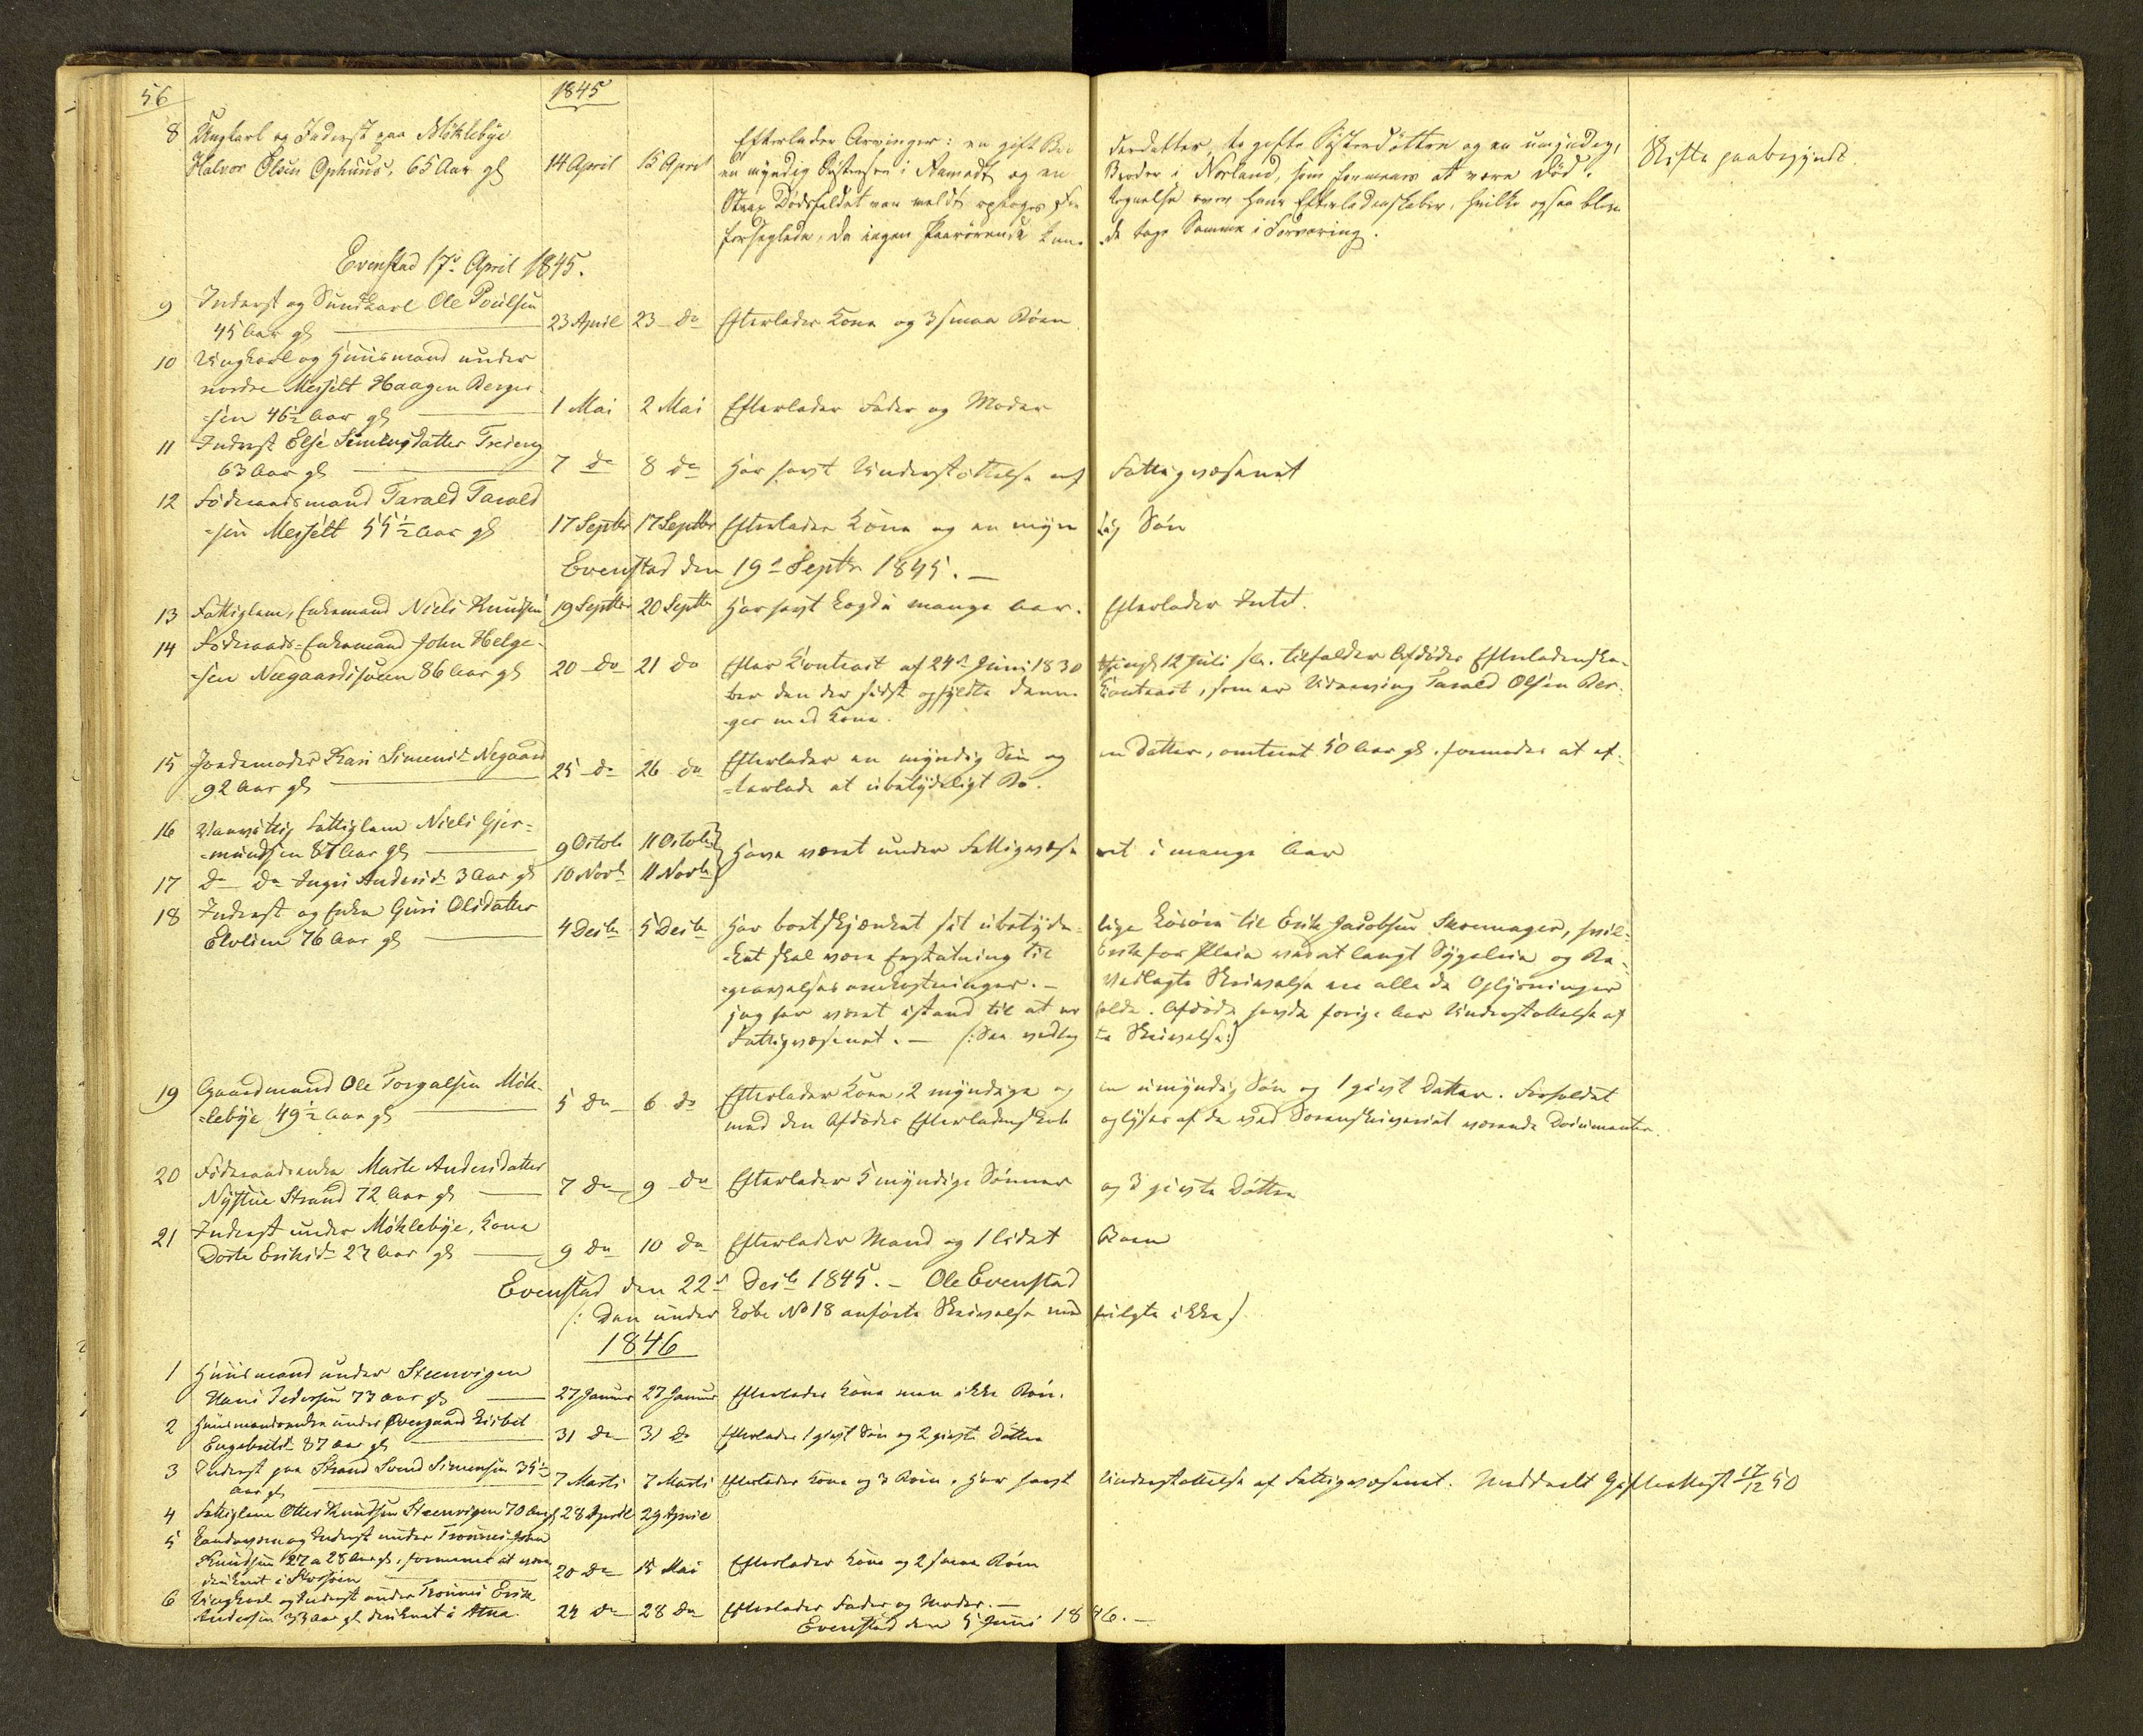 56
1845
8 Ungkarl og Inderst paa Møklebye
Halvor Olsen Ophuus, 65 Aar gl 14 April 15 April
Efterlader Arvinger: en gift Bro derdatter, to gifte Søsterdøttre og en umyndig,
en myndig Søstersøn i Aamodt og en Broder i Norland, som formenes at være død.
Strax Dødsfaldet var meldt optoges For tegnelse over hans Efterladenskaber, hvilke ogsaa blev
forseglede, da ingen Paarørende kun de tage Samme i Forvaring.
Skifte paabegyndt.
Evenstad 17de April 1845.
9 Inderst og Sundkarl Ole Poulsen
45 Aar gl 23 April 23 do Efterlader Kone og 3 smaa Børn
10 Ungkarl og Huusmand under
nordre Messelt Haagen Berger-
-sen 46½ Aar gl 1 Mai 2 Mai Efterlader Fader og Moder
11 Inderst Else Simensdatter Treeng
63 Aar gl 7 do 8 do Har havt Understøttelse af Fattigvæsenet
12 Føderaadsmand Tarald Tarald
-sen Messelt 55½ Aar gl 17 Septbr 17 Septbr Efterlader Kone og en myn dig Søn
Evenstad den 19de Septbr 1845.
13 Fattiglem, Enkemand Niels Knudsen 19 Septbr 20 Septbr Har havt Lægd i mange Aar. Efterlader Intet.
14 Føderaads-Enkemand John Helge-
-sen Neegaardsøien 86 Aar gl 20 do 21 do Efter Kontract af 24de Juni 1830 thinglst 12 Juli s.A. tilfalder Afdødes Efterladenska-
ber den der sidst opfyldte denne Contract, som er Udarving Tarald Olsen Ber-
-ger med Kone.
15 Jordemoder Kari Simensd. Negaard
92 Aar gl 25 do 26 do Efterlader en myndig Søn og en Datter, omtrent 50 Aar gl. formodes at ef-
-terlade et ubetydeligt Bo.
16 Vanvittig Fattiglem Niels Gjer-
-mundsen 87 Aar gl 9 Octob. 11 Octob.
Have været under Fattigvæse net i mange Aar
17 do do Inger Andersd. 3 Aar gl 10 Novb. 11 Novb.
18 Inderst og Enke Guri Olsdatter
Elvlien 76 Aar gl 4 Decb. 5 Decb. Har bortskjænket sit ubetyde- lige Løsøre til Erik Jacobsen Skomager, hvil-
-ket skal være Erstatning til Erik for Pleie under et langt Sygeleie og Be-
-gravelses omkostninger. Vedlagte Skrivelse ere alle de Oplysninger
jeg har været istand til at er holde. Afdøde havde forige Aar Understøttelse af
Fattigvæsenet. (: See vedlag te Skrivelse:)
19 Gaardmand Ole Torgalsen Møk-
-lebye 49½ Aar gl 5 do 6 do Efterlader Kone, 2 myndige og en umyndig Søn og 1 givt Datter. Forholdet
med den Afdødes Efterladenskab oplyses af de ved Sorenskriveriet værende Documenter.
20 Føderaadsenke Marte Andersdatter
Nystue Strand 72 Aar gl 7 do 9 do Efterlader 5 myndige Sønner og 3 givte Døttre
21 Inderst under Møklebye, Kone
Dorte Eriksd. 27 Aar gl 9 do 10 do Efterlader Mand og 1 lidet Barn
Evenstad den 22de Decb. 1845. Ole Evenstad
(: Den under Løbe No 18 anførte Skrivelse med fulgte ikke)
1846
1 Huusmand under Steenvigen
Hans Pedersen 73 Aar gl 27 Januar 27 Januar Efterlader Kone men ikke Børn.
2 Huusmandsenke under Øvergaard Lisbet
Engebretsd. 87 Aar gl 31 do 31 do Efterlader 1 givt Søn og 2 givte Døttre
3 Inderst paa Strand Svend Simensen 35½
Aar gl 7 Marts 7 Marts Efterlader Kone og 3 Børn. Har havt Understøttelse af Fattigvæsenet. Meddeelt Gifteattest 17/12 50
4 Fattiglem Otter Knudsen Steenvigen 70 Aar gl 28 April 29 April
5 Landværn og Inderst under Trønnes John
Knudsen 27 a 28 Aar gl, formeent at være
druknet i Storsøen 20 do 15 Mai Efterlader Kone og 2 smaa Børn
6 Ungkarl og Inderst under Trønnes Erik
Andersen 33 Aar gl druknet i Atna 24 do 28 do Efterlader Fader og Moder.
Evenstad den 5 Juni 1846.